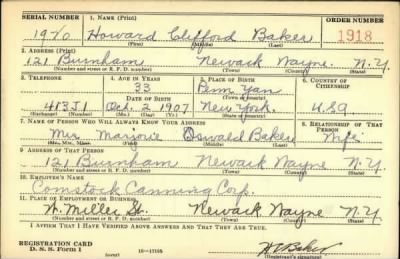 SERIAL NUMBER 1. NAME (Print) ORDER NUMBER
1970 Howard Clifford Baker 1918
(First) (Middle) (Last)
2. ADDRESS (Print)
121 Burnham Newark Wayne N.Y.
(Number and street or R. F. D. number) (Town) (County) (State)
3. TELEPHONE 4. AGE IN YEARS 5. PLACE OF BIRTH 6. COUNTRY OF CITIZENSHIP
33 Penn Yan
DATE OF BIRTH (Town or county)
413J1 Oct. 2 1907 New York. USA
(Exchange) (Number) (Mo.) (Day) (Yr.) (State or country)
7. NAME OF PERSON WHO WILL ALWAYS KNOW YOUR ADDRESS 8. RELATIONSHIP OF THAT PERSON
Mrs. Marjorie Oswald Baker Wife
(Mr., Mrs., Miss) (First) (Middle) (Last)
9. ADDRESS OF THAT PERSON
121 Burnham Newark Wayne N.Y.
(Number and street or R. F. D. number) (Town) (County) (State)
10. EMPLOYER'S NAME
Comstock Canning Corp.
11. PLACE OF EMPLOYMENT OR BUSINESS
W. Miller St. Newark Wayne N.Y.
(Number and street or R. F. D. number) (Town) (County) (State)
I AFFIRM THAT I HAVE VERIFIED ABOVE ANSWERS AND THAT THEY ARE TRUE.
REGISTRATION CARD
D. S. S. Form 1 (over) H C Baker
(Registrant's signature)